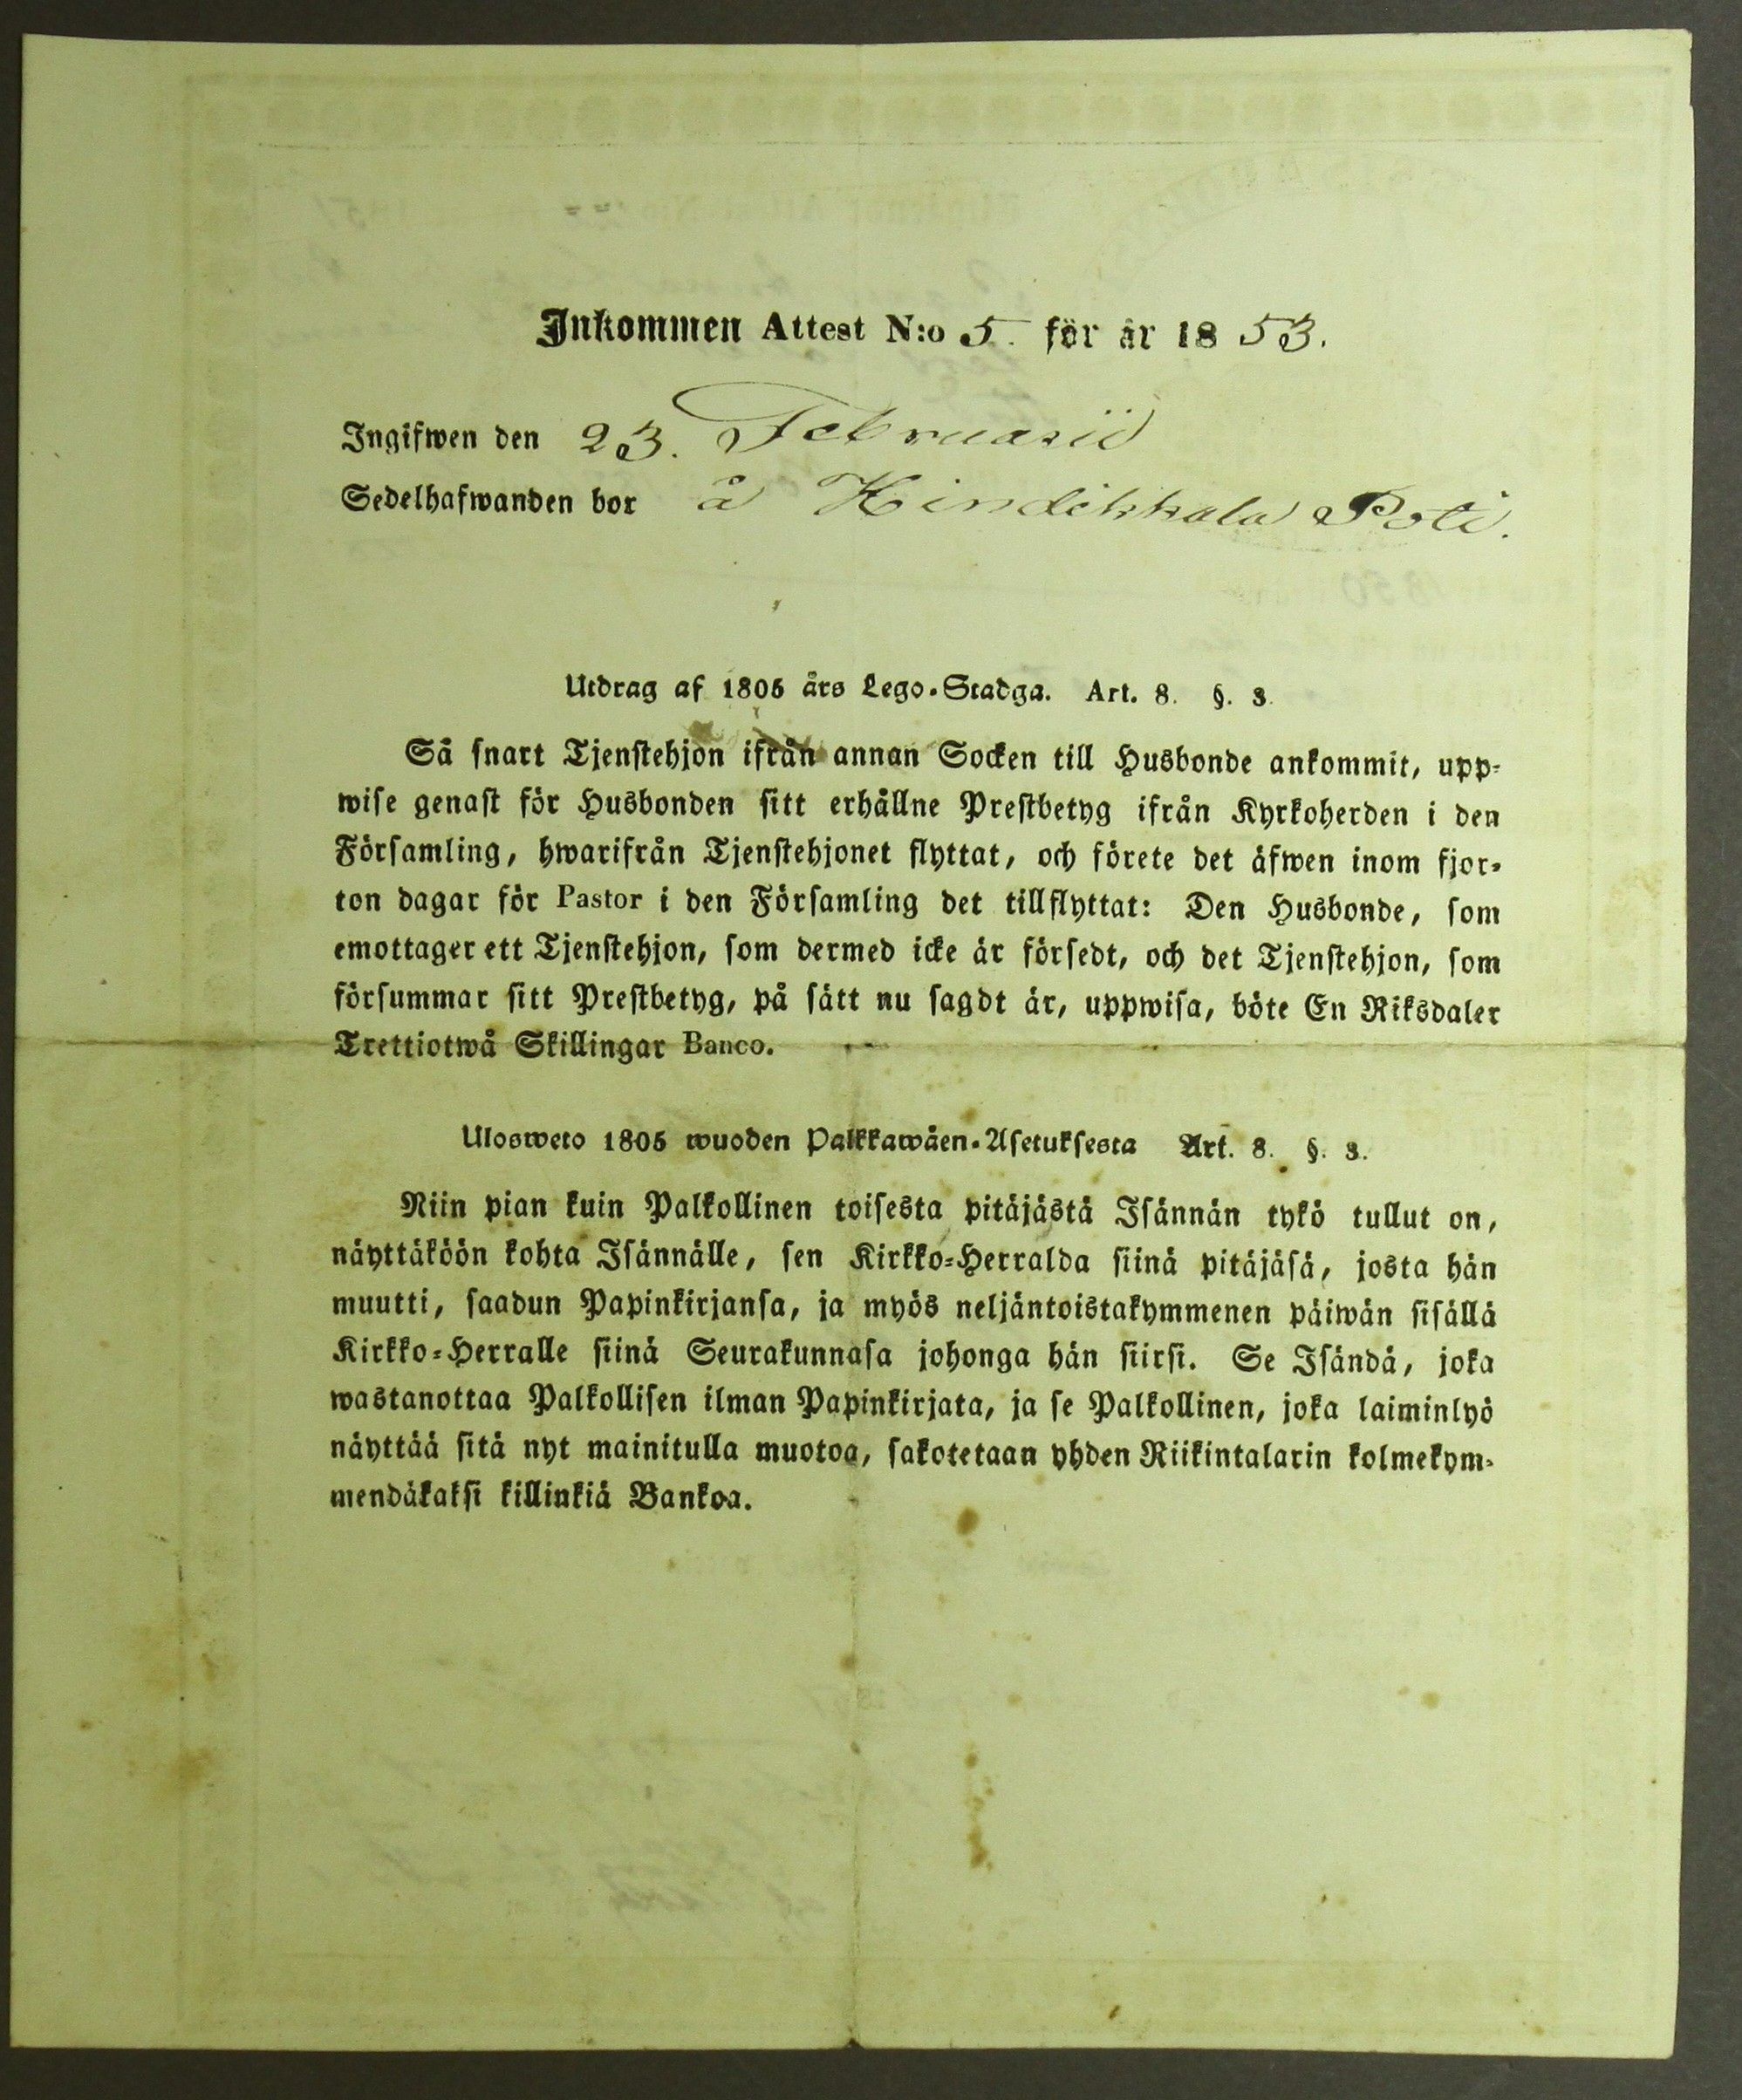 Inkommen Attest N:o 5. för år 1853.
Ingifwen den 23. Februarii
Sedelhafwanden bor å Hindikkala Poti.
Utdrag af 1805 års Lego-Stadga. Art. 8. §. 3.
Så snart Tjenstehjon ifrån annan Socken till Husbonde ankommit, upp-
wise genast för Husbonden sitt erhållne Prestbetyg ifrån Kyrkoherden i den
Församling, hwarifrån Tjenstehjonet flyttat, och förete det äfwen inom fjor-
ton dagar för Pastor i den Församling det tillflyttat: Den Husbonde, som
emottager ett Tjenstehjon, som dermed icke är försedt, och det Tjenstehjon, som
försummar sitt Prestbetyg, på sätt nu sagdt är, uppwisa, böte En Riksdaler
Trettiotwå Skillingar Banco.
Ulosweto 1805 wuoden Palkkawäen-Asetuksesta Art. 8. §. 3.
Niin pian kuin Palkollinen toisesta pitäjästä Isännän tykö tullut on,
näyttäköön kohta Isännälle, sen Kirkko-Herralda siinä pitäjäsä, josta hän
muutti, saadun Papinkirjansa, ja myös neljäntoistakymmenen päiwän sisällä
Kirkko-Herralle siinä Seurakunnasa johonga hän siirsi. Se Isändä, joka
wastanottaa Palkollisen ilman Papinkirjata, ja se Palkollinen, joka laiminlyö
näyttää sitä nyt mainitulla muotoa, sakotetaan yhden Riikintalarin kolmekym-
mendäkaksi killinkiä Bankoa.